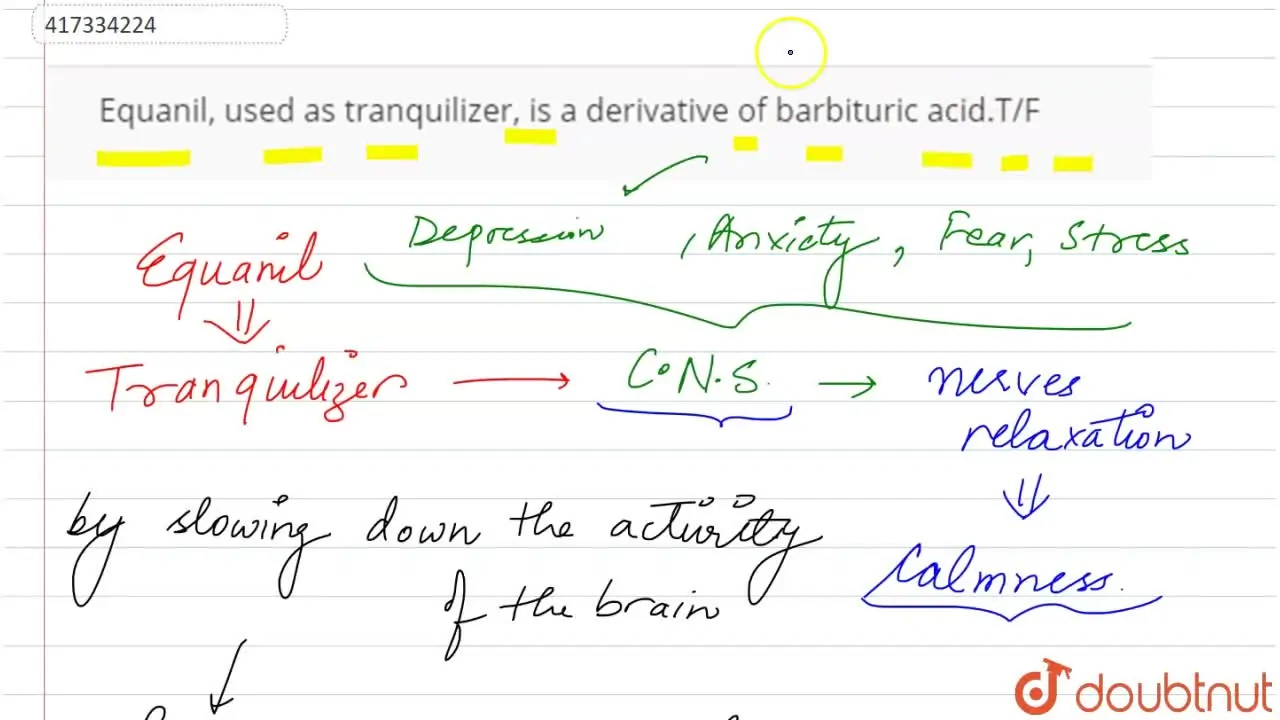 417334224
Equanil, used as tranquilizer, is a derivative of barbituric acid.T/F
Depression, Anxiety, Fear, Stress
Equanil
Tranquilizer → C.N.S. → nerves
relaxation
by slowing down the activity
of the brain
Calmness.
doubtnut